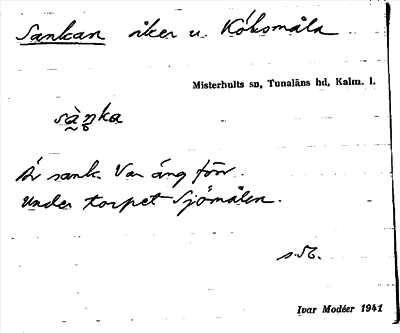 Sankan åker u. Kóksmåla
Misterhults sn, Tunaläns hd, Kalm. l.
sàŋka
Är sank. Var äng förr.
Under torpet Sjömålen.
Ivar Modéer 1941